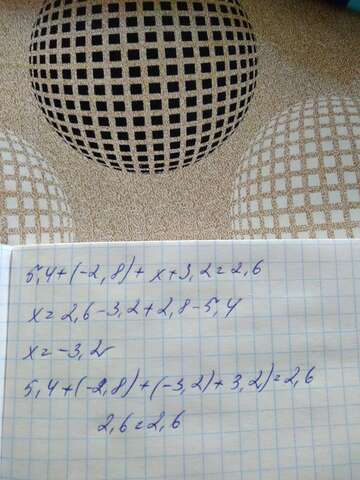 5,4+(-2,8)+x+3,2=2,6
x=2,6-3,2+2,8-5,4
x=-3,2
5,4+(-2,8)+(-3,2)+3,2)=2,6
2,6=2,6